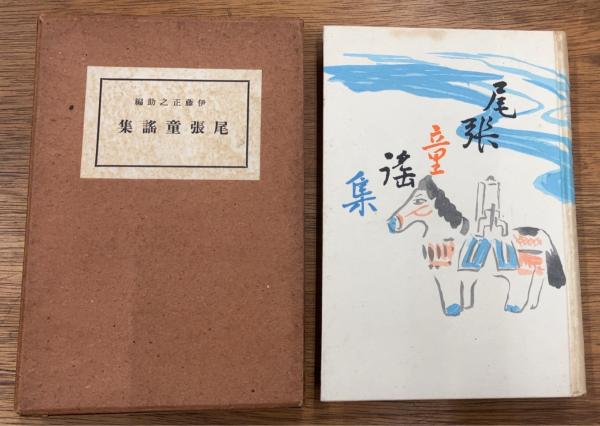 伊藤正之助編
尾張童謠集
尾張童謠集